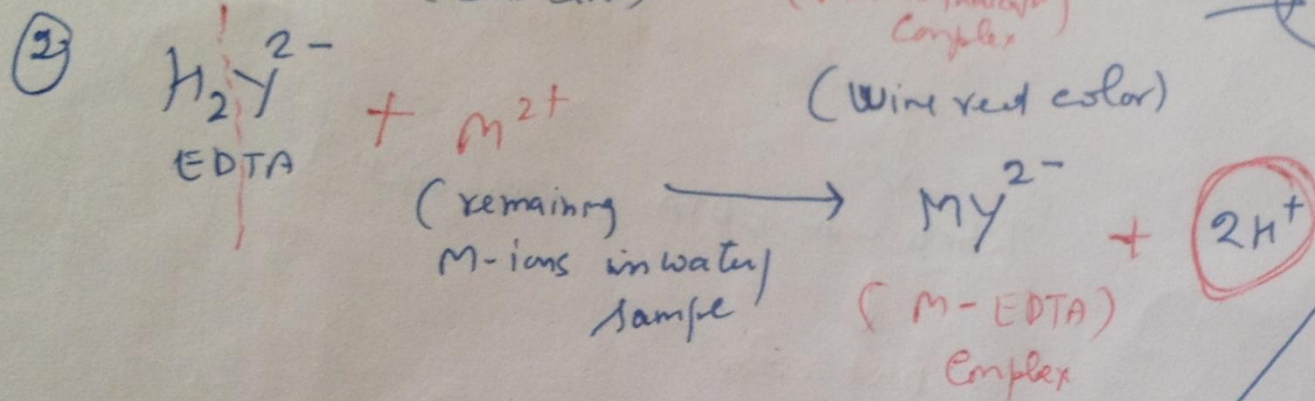 Complex
(Wine red color)
② H₂Y²⁻ + M²⁺ ⟶ MY²⁻ + 2H⁺
EDTA
(remaining
M-ions in water
sample
(M-EDTA)
Complex